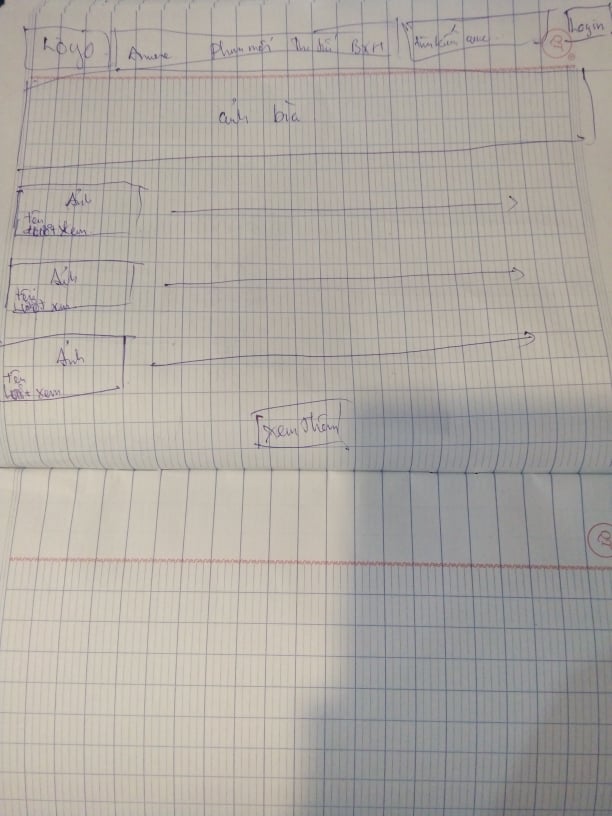 Logo Anime phim mới Thể loại BXH tìm kiếm anime Login
ảnh bìa
Ảnh
tên
lượt xem
Ảnh
tên
lượt xem
Ảnh
tên
lượt xem
xem thêm